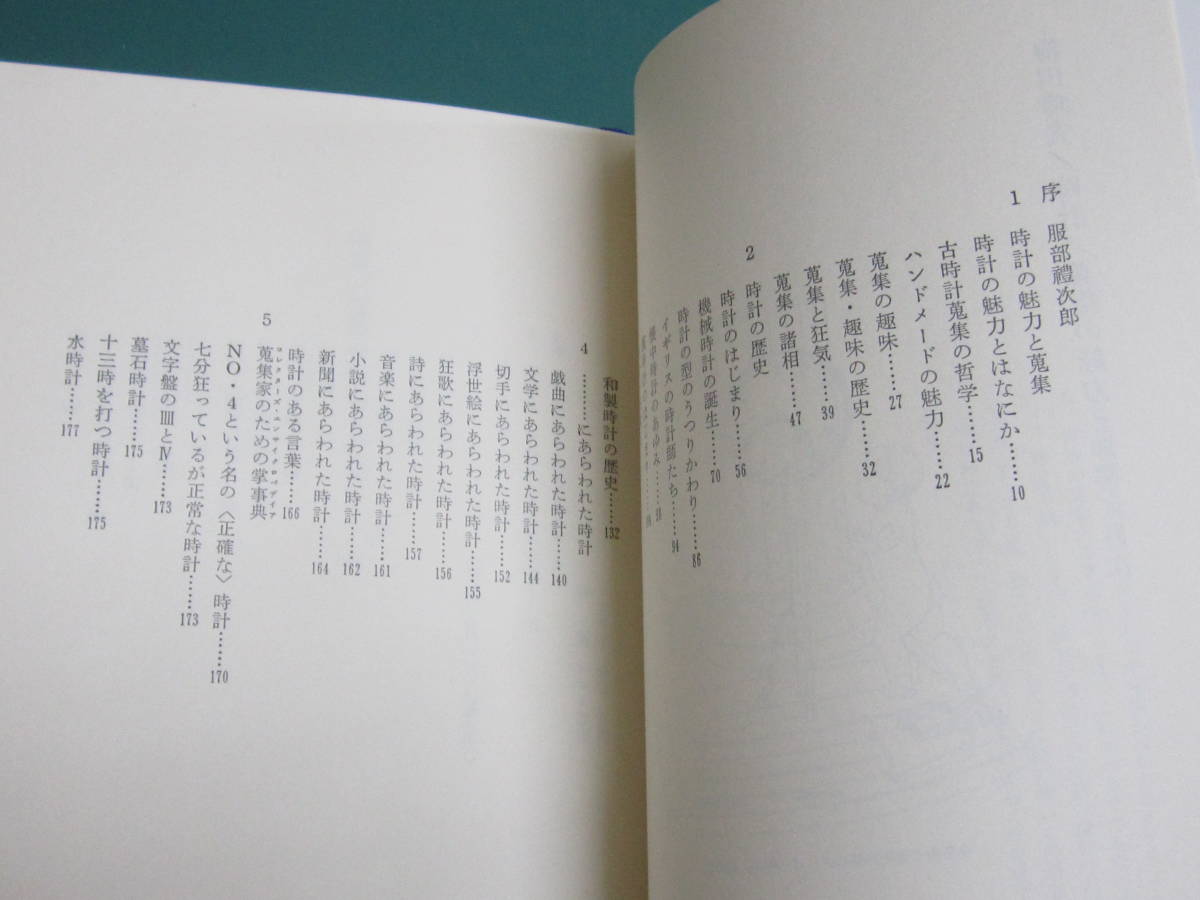 序 服部禮次郎
1 時計の魅力と蒐集
時計の魅力とはなにか……10
古時計蒐集の哲学……15
ハンドメードの魅力……22
蒐集の趣味……27
蒐集・趣味の歴史……32
蒐集と狂気……39
蒐集の諸相……47
2 時計の歴史
時計のはじまり……56
機械時計の誕生……70
時計の型のうつりかわり……86
イギリスの時計師たち……94
懐中時計のあゆみ……
和製時計の歴史……132
4 ………にあらわれた時計
戯曲にあらわれた時計……140
文学にあらわれた時計……144
切手にあらわれた時計……152
浮世絵にあらわれた時計……155
狂歌にあらわれた時計……156
詩にあらわれた時計……157
音楽にあらわれた時計……161
小説にあらわれた時計……162
新聞にあらわれた時計……164
時計のある言葉……166
5 蒐集家のための掌事典
コレクターズ・エンサイクロペディア
NO・4という名の〈正確な〉時計……170
七分狂っているが正常な時計……173
文字盤のⅢⅠとⅣ……173
墓石時計……175
十三時を打つ時計……175
水時計……177